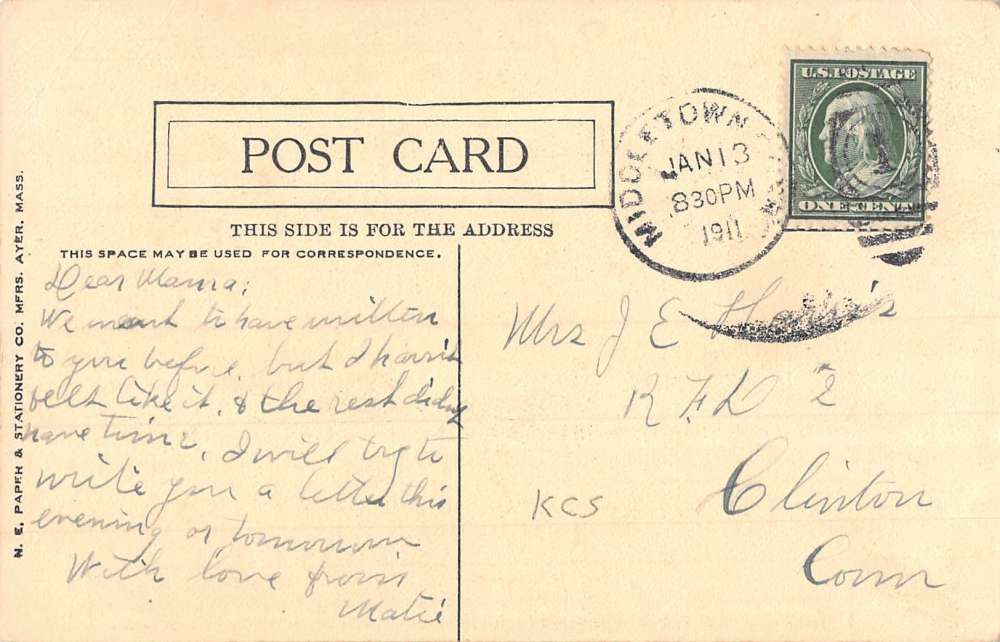 U.S. POSTAGE
ONE CENT
MIDDLETOWN
JAN 13
830 PM
1911
POST CARD
THIS SIDE IS FOR THE ADDRESS
THIS SPACE MAY BE USED FOR CORRESPONDENCE.
N. E. PAPER & STATIONERY CO. MFRS. AYER. MASS.
Dear Mama:
We meant to have written
to you before, but I havn't
felt like it, & the rest didn't
have time. I will try to
write you a letter this
evening or tomorrow
With love from
Matie
Mrs J E Harris
R F D 2
Clinton
Conn
KCS